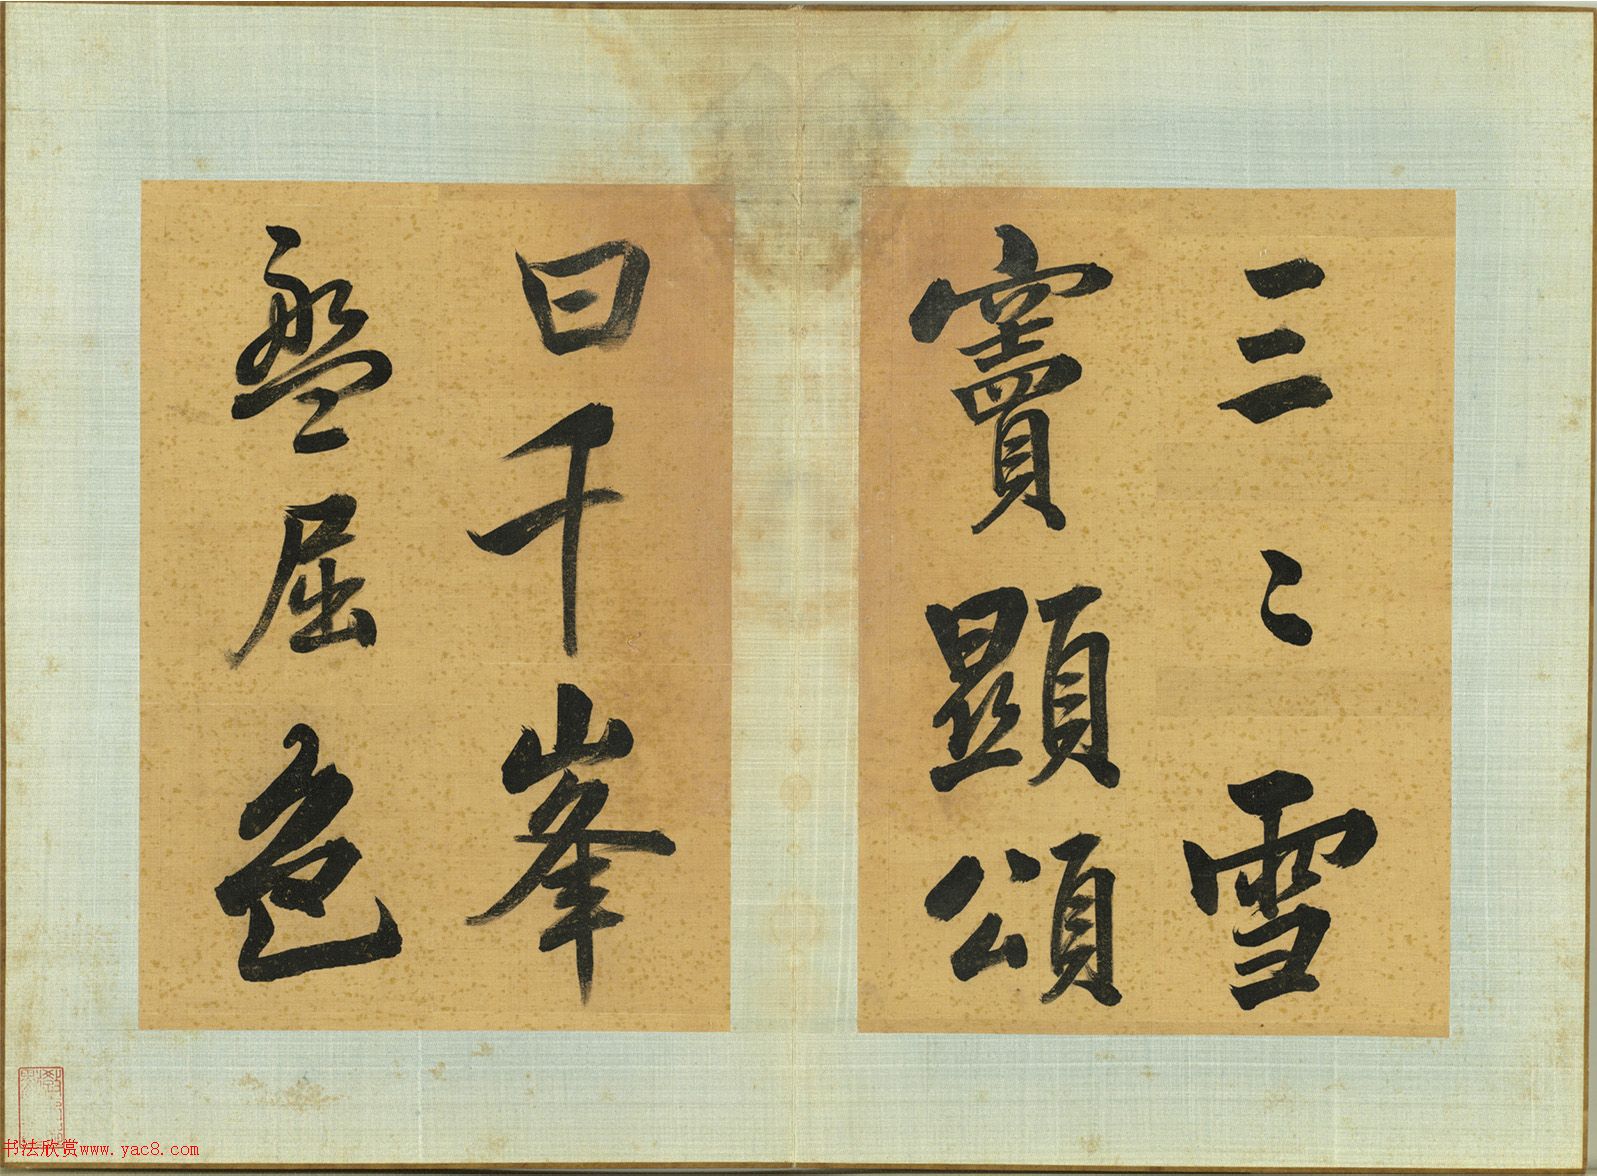 三三〻雪
竇顯頌
曰千峯
盤屈色
书法欣赏www.yac8.com